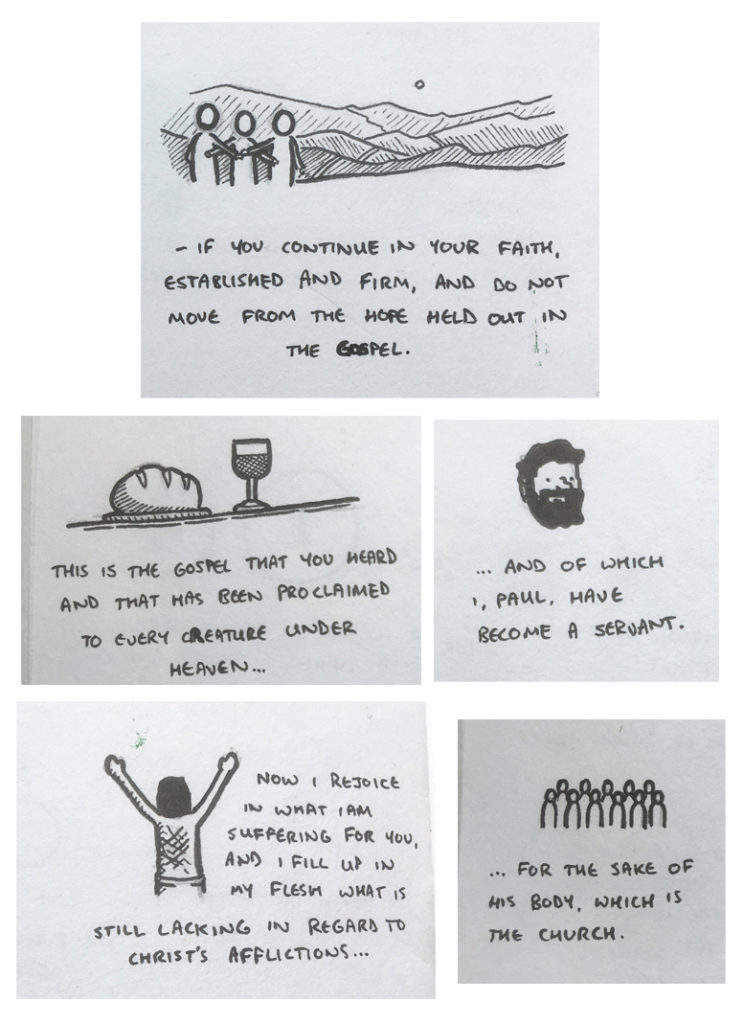 - IF YOU CONTINUE IN YOUR FAITH,
ESTABLISHED AND FIRM, AND DO NOT
MOVE FROM THE HOPE HELD OUT IN
THE GOSPEL.
THIS IS THE GOSPEL THAT YOU HEARD
AND THAT HAS BEEN PROCLAIMED
TO EVERY CREATURE UNDER
HEAVEN...
... AND OF WHICH
I, PAUL, HAVE
BECOME A SERVANT.
NOW I REJOICE
IN WHAT I AM
SUFFERING FOR YOU,
AND I FILL UP IN
MY FLESH WHAT IS
STILL LACKING IN REGARD TO
CHRIST'S AFFLICTIONS...
... FOR THE SAKE OF
HIS BODY, WHICH IS
THE CHURCH.